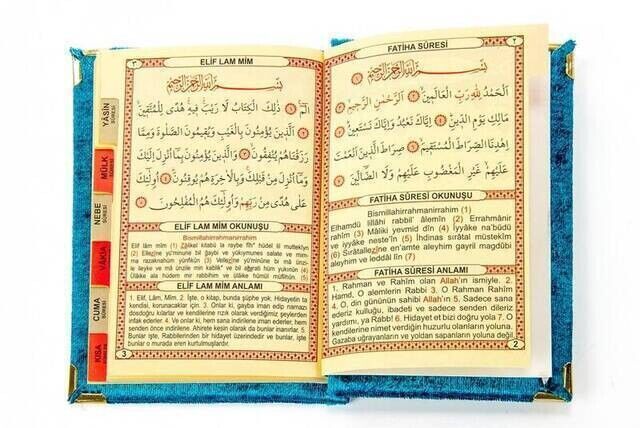 FATİHA SÛRESİ
٢
بِسْمِ اللهِ الرَّحْمٰنِ الرَّحِيمِ
اَلْحَمْدُ لِلّٰهِ رَبِّ الْعَالَمِينَ اَلرَّحْمٰنِ الرَّحِيمِ
مَالِكِ يَوْمِ الدِّينِ اِيَّاكَ نَعْبُدُ وَاِيَّاكَ نَسْتَعِينُ
اِهْدِنَا الصِّرَاطَ الْمُسْتَقِيمَ صِرَاطَ الَّذِينَ اَنْعَمْتَ
عَلَيْهِمْ غَيْرِ الْمَغْضُوبِ عَلَيْهِمْ وَلَا الضَّالِّينَ
FATİHA SÛRESİ OKUNUŞU
Bismillahirrahmanirrahim (1)
Elhamdü lillâhi rabbil' âlemîn (2) Errahmânir
rahîm (3) Mâliki yevmid dîn (4) İyyâke na'büdü
ve iyyâke neste'în (5) İhdinas sırâtal müstekîm
(6) Sırâtallezîne en'amte aleyhim gayril magdûbi
aleyhim ve leddâl lîn (7)
FATİHA SÛRESİ ANLAMI
1. Rahman ve Rahîm olan Allah'ın ismiyle. 2.
Hamd, O alemlerin Rabbi 3. O Rahman Rahîm
4. O, din gününün sahibi Allah'ın 5. Sadece sana
ederiz kulluğu, ibadeti ve sadece senden dileriz
yardımı, ya Rabb! 6. Hidayet et bizi doğru yola 7. O
kendilerine nimet verdiğin huzurlu olanların yoluna.
Gazaba uğrayanların ve yoldan sapanların yoluna değil.
2
٣
ELİF LAM MÎM
بِسْمِ اللهِ الرَّحْمٰنِ الرَّحِيمِ
الٓمٓ ذٰلِكَ الْكِتَابُ لَا رَيْبَ فِيهِ هُدًى لِلْمُتَّقِينَ
اَلَّذِينَ يُؤْمِنُونَ بِالْغَيْبِ وَيُقِيمُونَ الصَّلٰوةَ وَمِمَّا
رَزَقْنَاهُمْ يُنْفِقُونَ وَالَّذِينَ يُؤْمِنُونَ بِمَٓا اُنْزِلَ اِلَيْكَ
وَمَٓا اُنْزِلَ مِنْ قَبْلِكَ وَبِالْاٰخِرَةِ هُمْ يُوقِنُونَ اُولٰٓئِكَ
عَلٰى هُدًى مِنْ رَبِّهِمْ وَاُولٰٓئِكَ هُمُ الْمُفْلِحُونَ
ELİF LAM MÎM OKUNUŞU
Bismillahirrahmanirrahim
Elif lâm mîm (1) Zâlikel kitabü la raybe fîh' hüdel lil muttekîyn
(2) Ellezîne yü'minune bil ğaybi ve yükıymunes salate ve mim-
ma razaknahüm yünfikûn' (3) Vellezîne yü'minune bi mâ ünzi-
le ileyke ve mâ ünzile min kablik' ve bil ahırati hüm yûkınûn (4)
Ülâike ala hüdem mir rabbihim ve ülâike hümül müflihûn (5)
ELİF LAM MÎM ANLAMI
1. Elif, Lâm, Mîm. 2. İşte, o kitap, bunda şüphe yok, Hidayetin ta
kendisi, korunacaklar için. 3. Onlar ki, gayba iman edip namazı
dosdoğru kılarlar ve kendilerine rızık olarak verdiğimiz şeylerden
infak ederler. 4. Ve onlar ki, hem sana indirilene iman ederler, hem
senden önce indirilene. Ahirete kesin olarak da bunlar inanırlar. 5.
Bunlar işte, Rabbilerinden bir hidayet üzerindedir ve bunlar, işte
bunlar o murada eren kurtulmuşlardır.
3
YÂSİN
SÛRESİ
MÜLK
SÛRESİ
NEBE
SÛRESİ
VAKIA
CUMA
SÛRESİ
KISA
SÛRELER